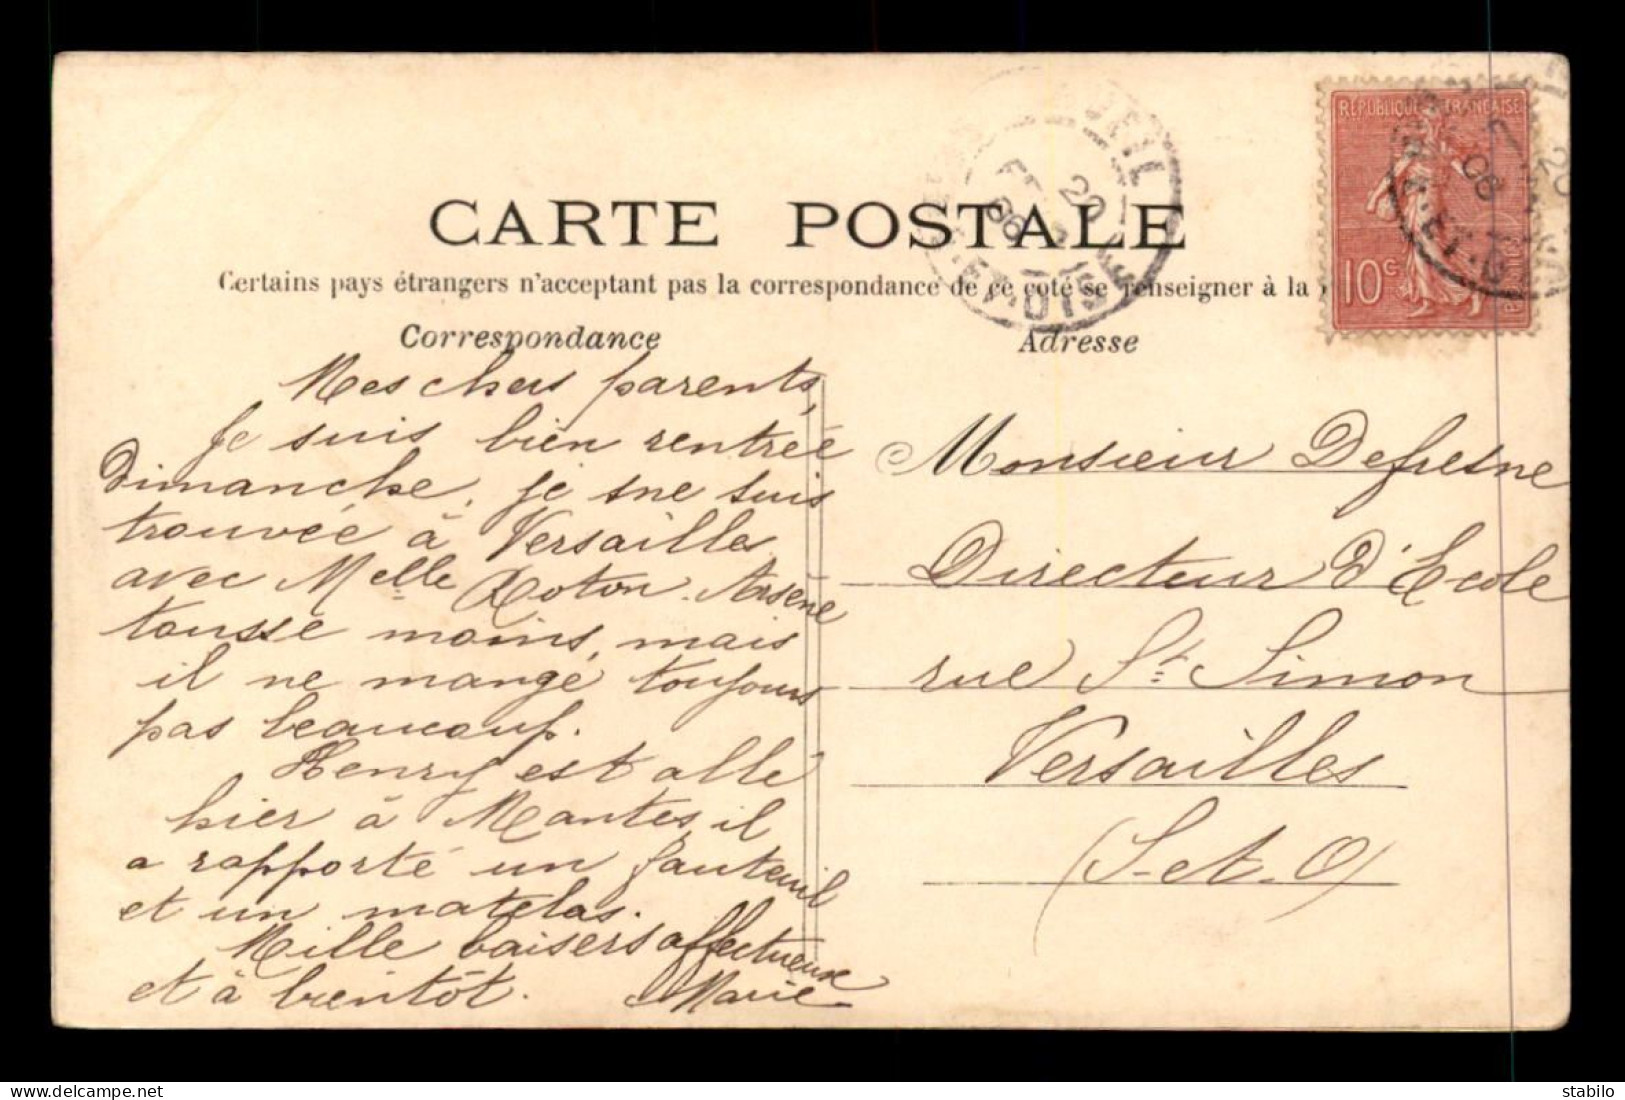 RÉPUBLIQUE FRANÇAISE
10c
CARTE POSTALE
Certains pays étrangers n'acceptant pas la correspondance de ce coté se renseigner à la
Correspondance
Adresse
Mes chers parents,
Je suis bien rentrée
Dimanche, je me suis
trouvée à Versailles
avec Melle Loton. Arsène
tousse moins, mais
il ne mange toujours
pas beaucoup.
Henry est allé
hier à Mantes, il
a rapporté un fauteuil
et un matelas.
Mille baisers affectueux
et à bientôt. Marie
Monsieur Defresne
Directeur d'Ecole
rue St Simon
Versailles
(S-et-O)
stabilo